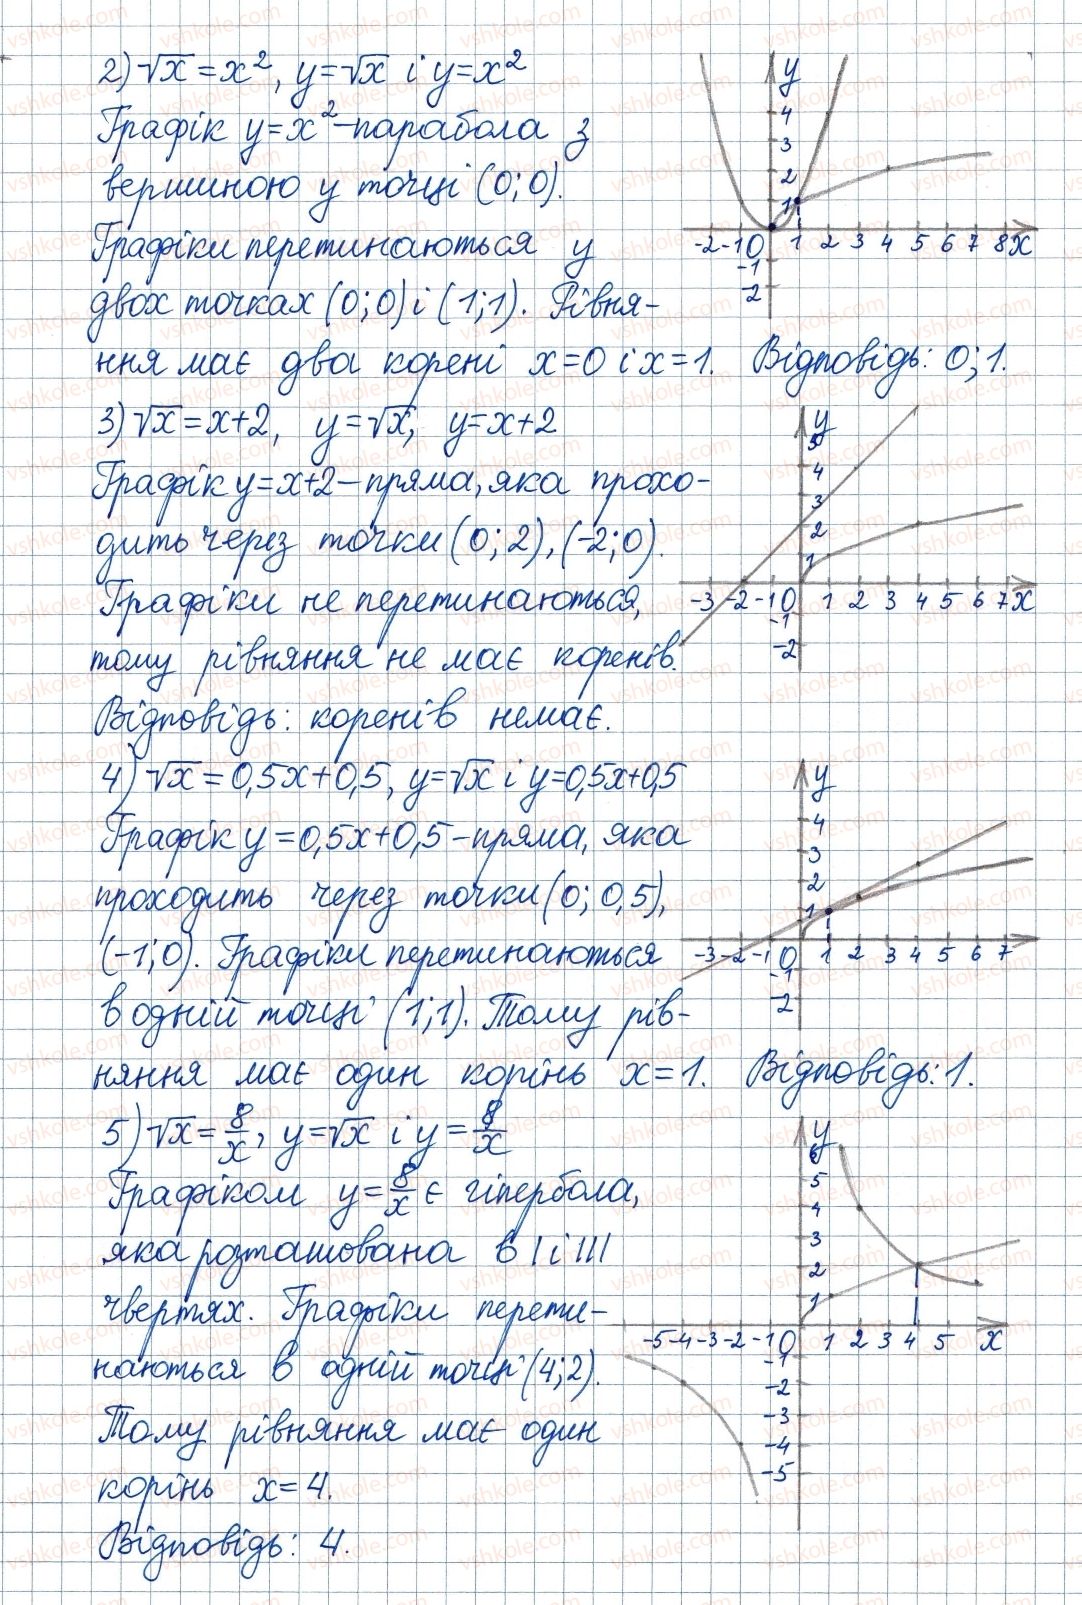 2) √x = x², y=√x і y=x²
Графік y=x² – парабола з
вершиною у точці (0; 0).
Графіки перетинаються у
двох точках (0; 0) і (1; 1). Рівня-
ння має два корені x=0 і x=1. Відповідь: 0; 1.
3) √x = x+2, y=√x, y=x+2
Графік y=x+2 – пряма, яка прохо-
дить через точки (0; 2), (-2; 0).
Графіки не перетинаються,
тому рівняння не має коренів.
Відповідь: коренів немає.
4) √x = 0,5x+0,5, y=√x і y=0,5x+0,5
Графік y=0,5x+0,5 – пряма, яка
проходить через точки (0; 0,5),
(-1; 0). Графіки перетинаються
в одній точці (1; 1). Тому рів-
няння має один корінь x=1. Відповідь: 1.
5) √x = 8/x, y=√x і y=8/x
Графіком y=8/x є гіпербола,
яка розташована в I і III
чвертях. Графіки перети-
наються в одній точці (4; 2).
Тому рівняння має один
корінь x=4.
Відповідь: 4.
y
4
3
2
1
-2 -1 0 1 2 3 4 5 6 7 8 x
-1
-2
y
5
4
3
2
1
-3 -2 -1 0 1 2 3 4 5 6 7 x
-1
-2
y
4
3
2
1
-3 -2 -1 0 1 2 3 4 5 6 7
-1
-2
y
6
5
4
3
2
1
-5 -4 -3 -2 -1 0 1 2 3 4 5 x
-1
-2
-3
-4
-5
vshkole.com